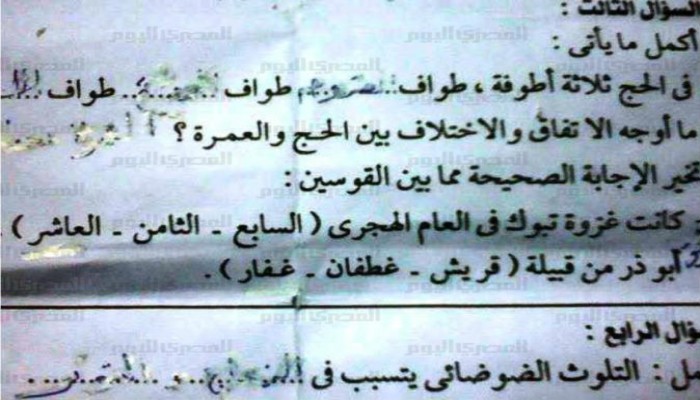 السؤال الثالث :
أكمل ما يأتى :
فى الحج ثلاثة أطوفة ، طواف طواف طواف
ما أوجه الاتفاق والاختلاف بين الحج والعمرة ؟
تخير الإجابة الصحيحة مما بين القوسين :
كانت غزوة تبوك فى العام الهجرى ( السابع - الثامن - العاشر ) .
أبو ذر من قبيلة ( قريش - غطفان - غفار ) .
الرابع :
التلوث الضوضائى يتسبب فى